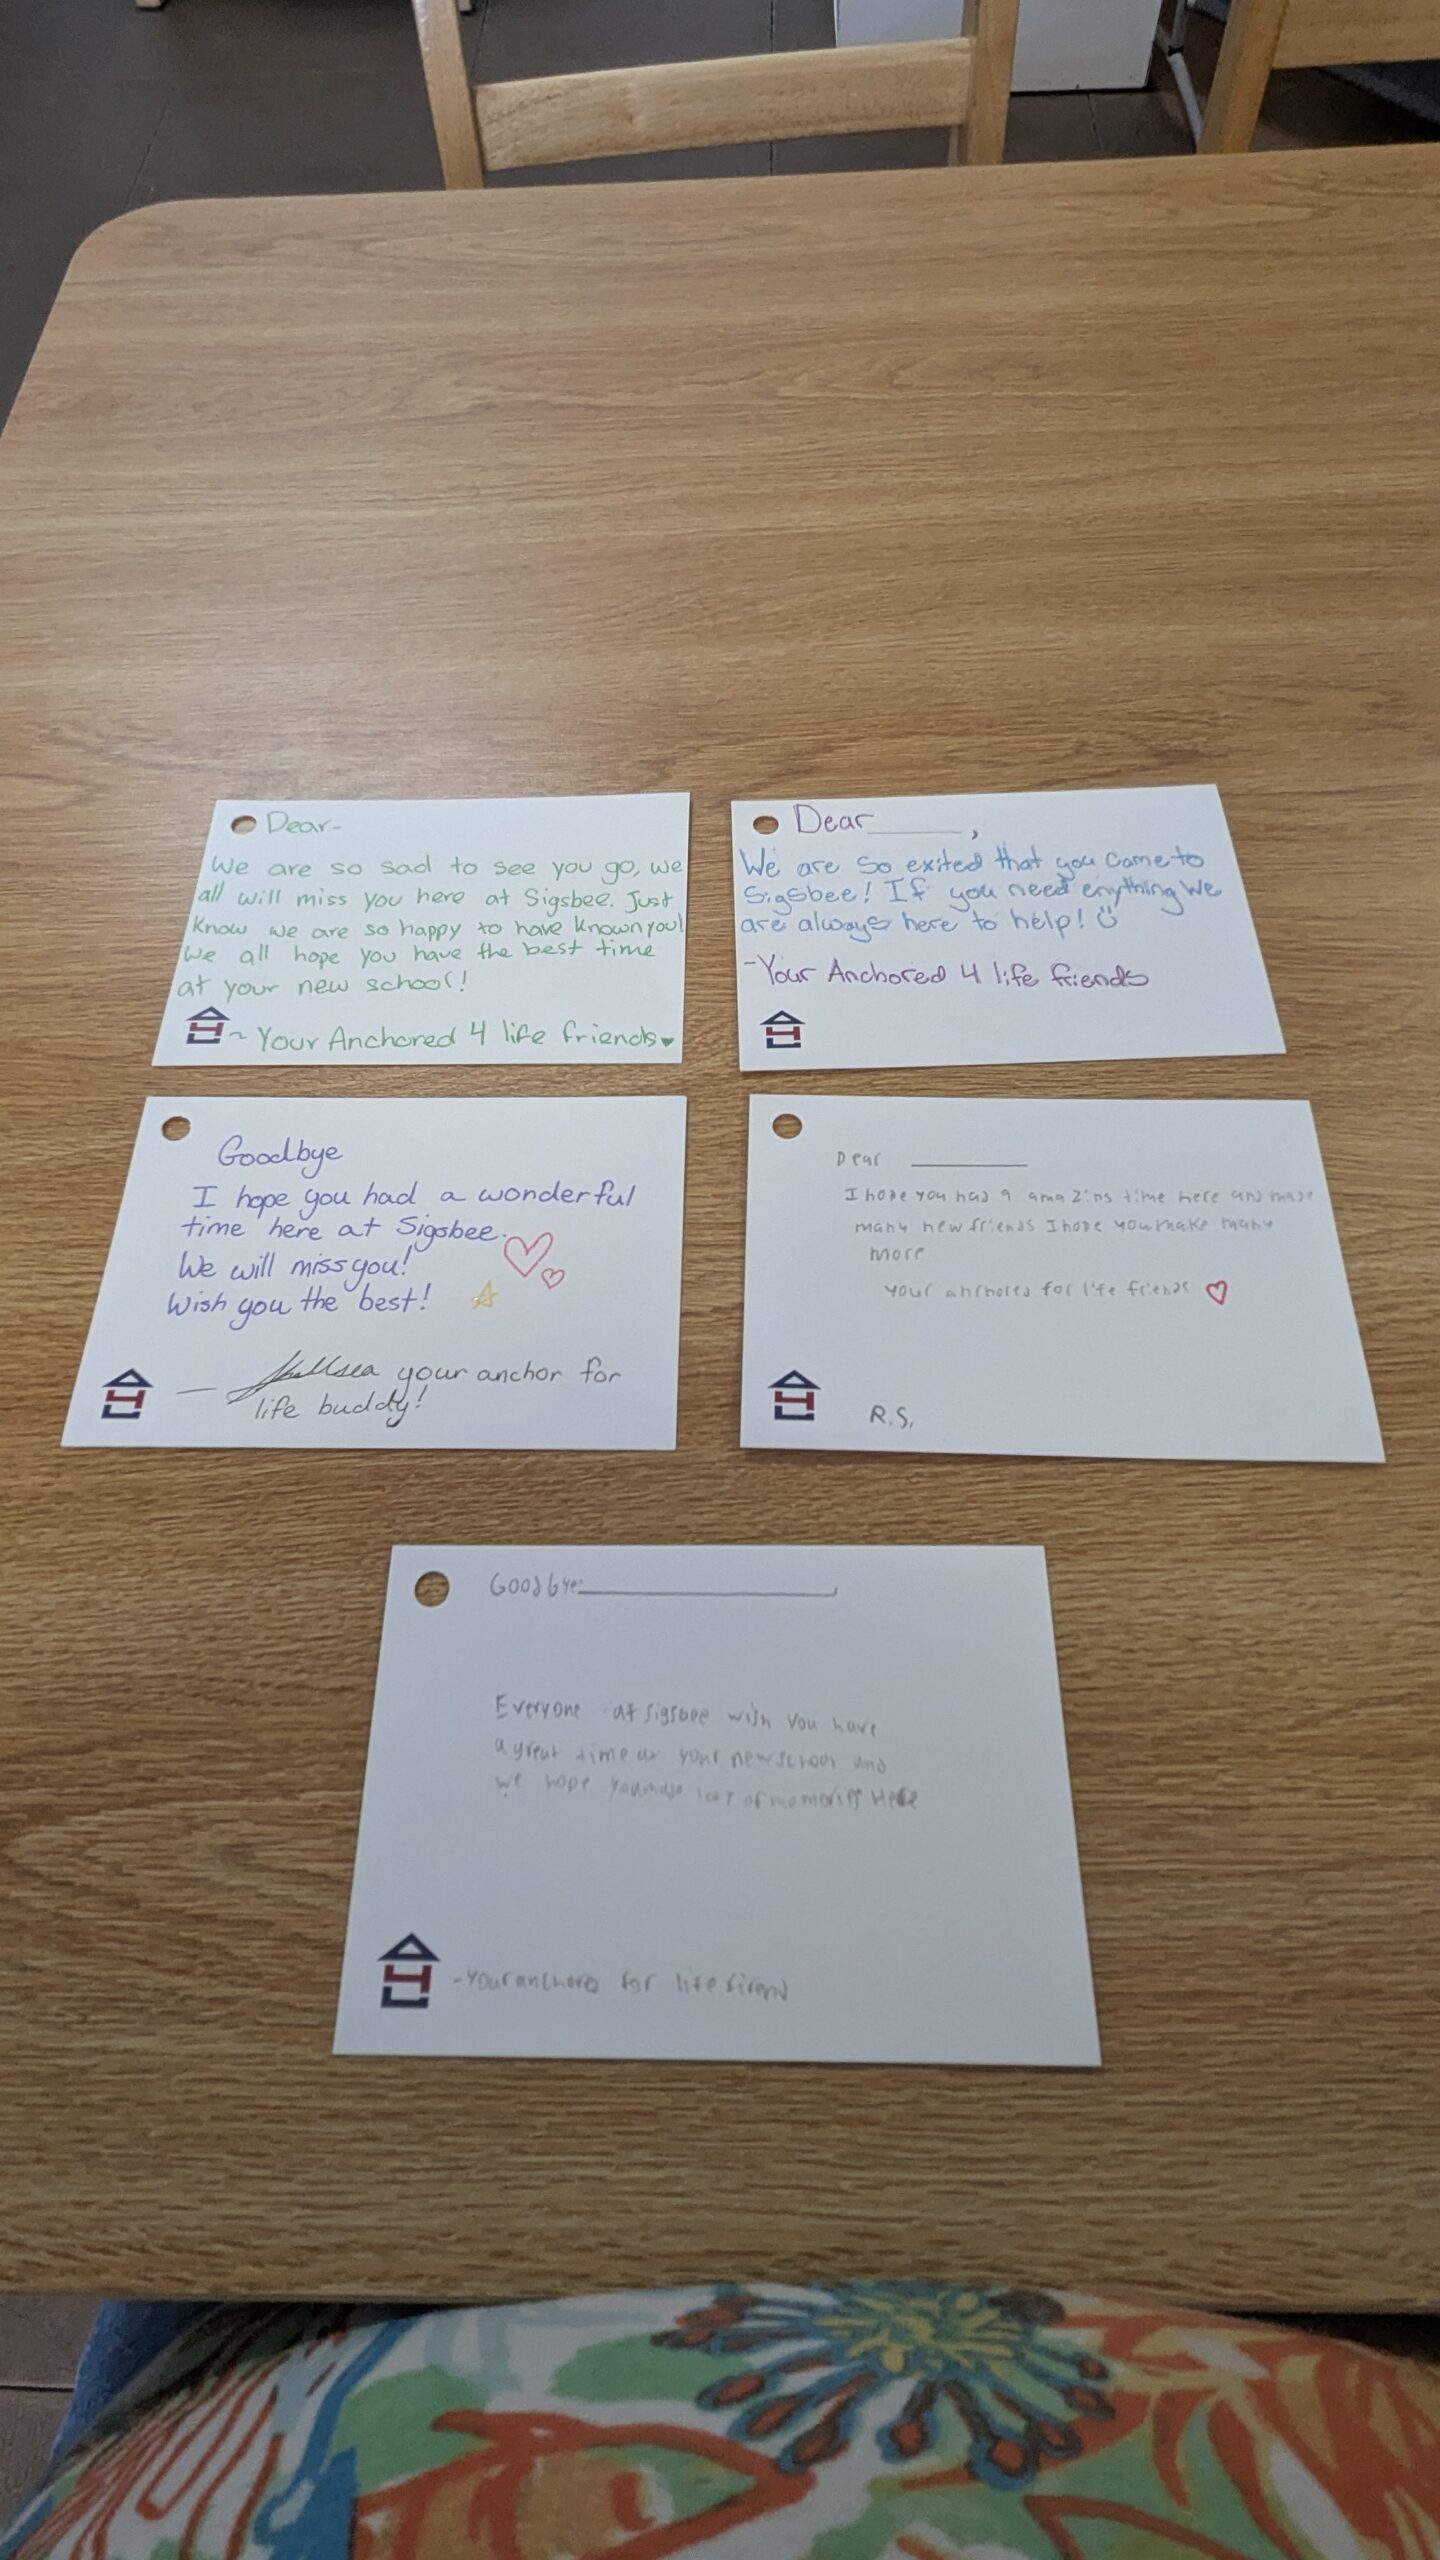 Dear-
We are so sad to see you go, we
all will miss you here at Sigsbee. Just
know we are so happy to have known you!
We all hope you have the best time
at your new school!
~ Your Anchored 4 life friends
Dear ______,
We are so exited that you came to
Sigsbee! If you need enything we
are always here to help!
-Your Anchored 4 life friends
Goodbye
I hope you had a wonderful
time here at Sigsbee.
We will miss you!
Wish you the best!
— your anchor for
life buddy!
Dear ______
I hope you had a amazing time here and made
many new friends I hope you make many
more
your anchored for life friends
R.S.
Goodbye: ______
Everyone at sigsbee wish you have
a great time at your new school and
we hope you of memories Here
-your anchored for life